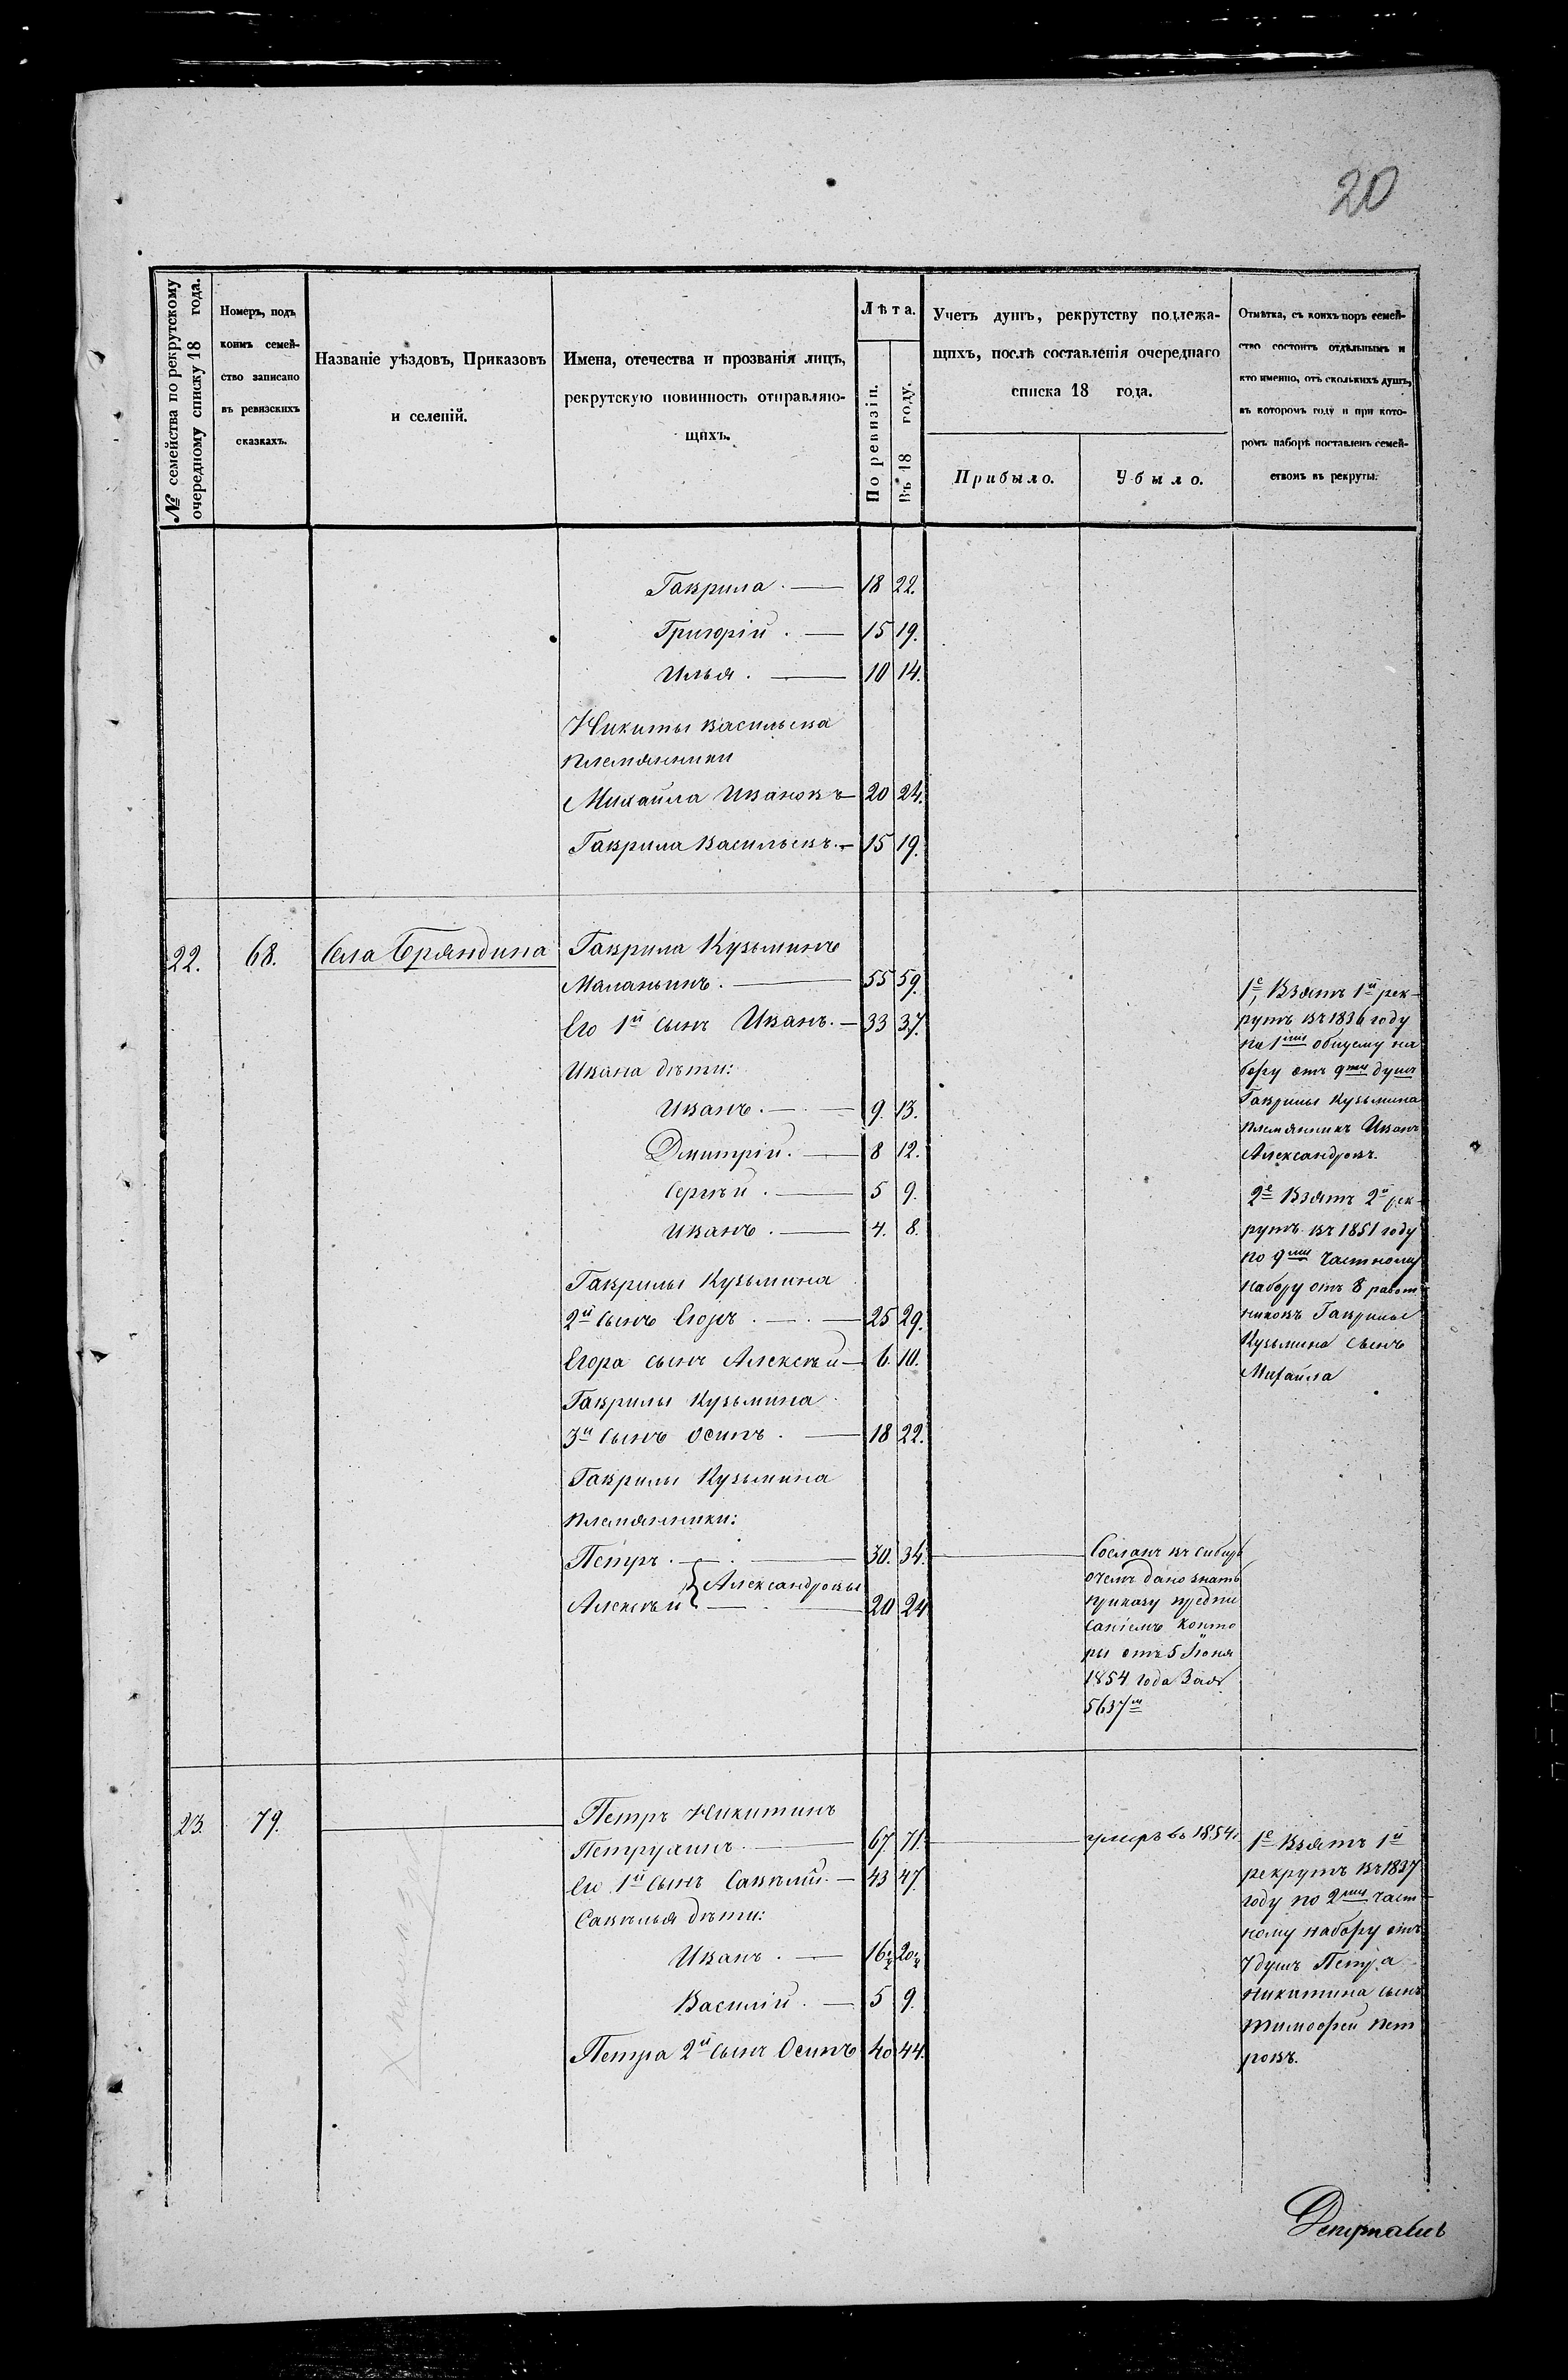 20
№ семейства по рекрутскому
очередному списку 18 года.
Номеръ, подъ
коимъ семей-
ство записано
въ ревизскихъ
сказкахъ.
Названіе уѣздовъ, Приказовъ
и селеній.
Имена, отечества и прозванія лицъ,
рекрутскую повинность отправляю-
щихъ.
Лѣта.
По ревизіи.
Въ 18 году.
Учетъ душъ, рекрутству подлежа-
щихъ, послѣ составленія очереднаго
списка 18 года.
Прибыло.
Убыло.
Отмѣтка, съ коихъ поръ семей-
ство состоитъ отдѣльнымъ и
кто именно, отъ сколькихъ душъ,
въ которомъ году и при кото-
ромъ наборѣ поставленъ семей-
ствомъ въ рекруты.
Гаврила. — 18 22.
Григорій. — 15 19.
Илья. — 10 14.
Никиты Васильева
племянники
Михайла Ивановъ — 20 24.
Гаврила Васильевъ. — 15 19.
22. 68. Села Бряндина
Гаврила Кузьминъ
Маланьинъ. — 55 59.
Его 1й сынъ Иванъ. — 33 37.
Ивана дѣти:
Иванъ. — 9. 13.
Дмитрій. — 8 12.
Сергѣй. — 5 9.
Иванъ. — 4. 8.
Гаврилы Кузьмина
2й сынъ Егоръ. — 25 29.
Егора сынъ Алексѣй — 6. 10.
Гаврилы Кузьмина
3й сынъ Осипъ. — 18 22.
Гаврилы Кузьмина
племянники:
Петръ. — 30. 34.
Александровы
Алексѣй — 20 24
Сосланъ въ Сибирь
о чемъ дано знать
приказу предпи
саніемъ Конто
ры отъ 5 Іюня
1854 года За №
5637м
1е, Взятъ 1й рек-
рутъ въ 1836 году
по 1му общему на
бору отъ 9ти душъ
Гаврилы Кузьмина
племянникъ Иванъ
Александровъ.
2е Взятъ 2й рек-
рутъ въ 1851 году
по 9му частному
набору отъ 8 работ
никовъ Гаврилы
Кузьмина сынъ
Михайла
23. 79. —
Петръ Никитинъ
Петрухинъ. — 67. 71. — умеръ въ 1854г
Его 1й сынъ Савелій. — 43 47
Савелья дѣти:
Иванъ. — 16½ 20½
Василій. — 5 9.
Петра 2й сынъ Осипъ 40 44.
1е Взятъ 1й
рекрутъ въ 1837
году по 2му част-
ному набору отъ
7 душъ Петра
Никитина сынъ
Тимофей Пет
ровъ.